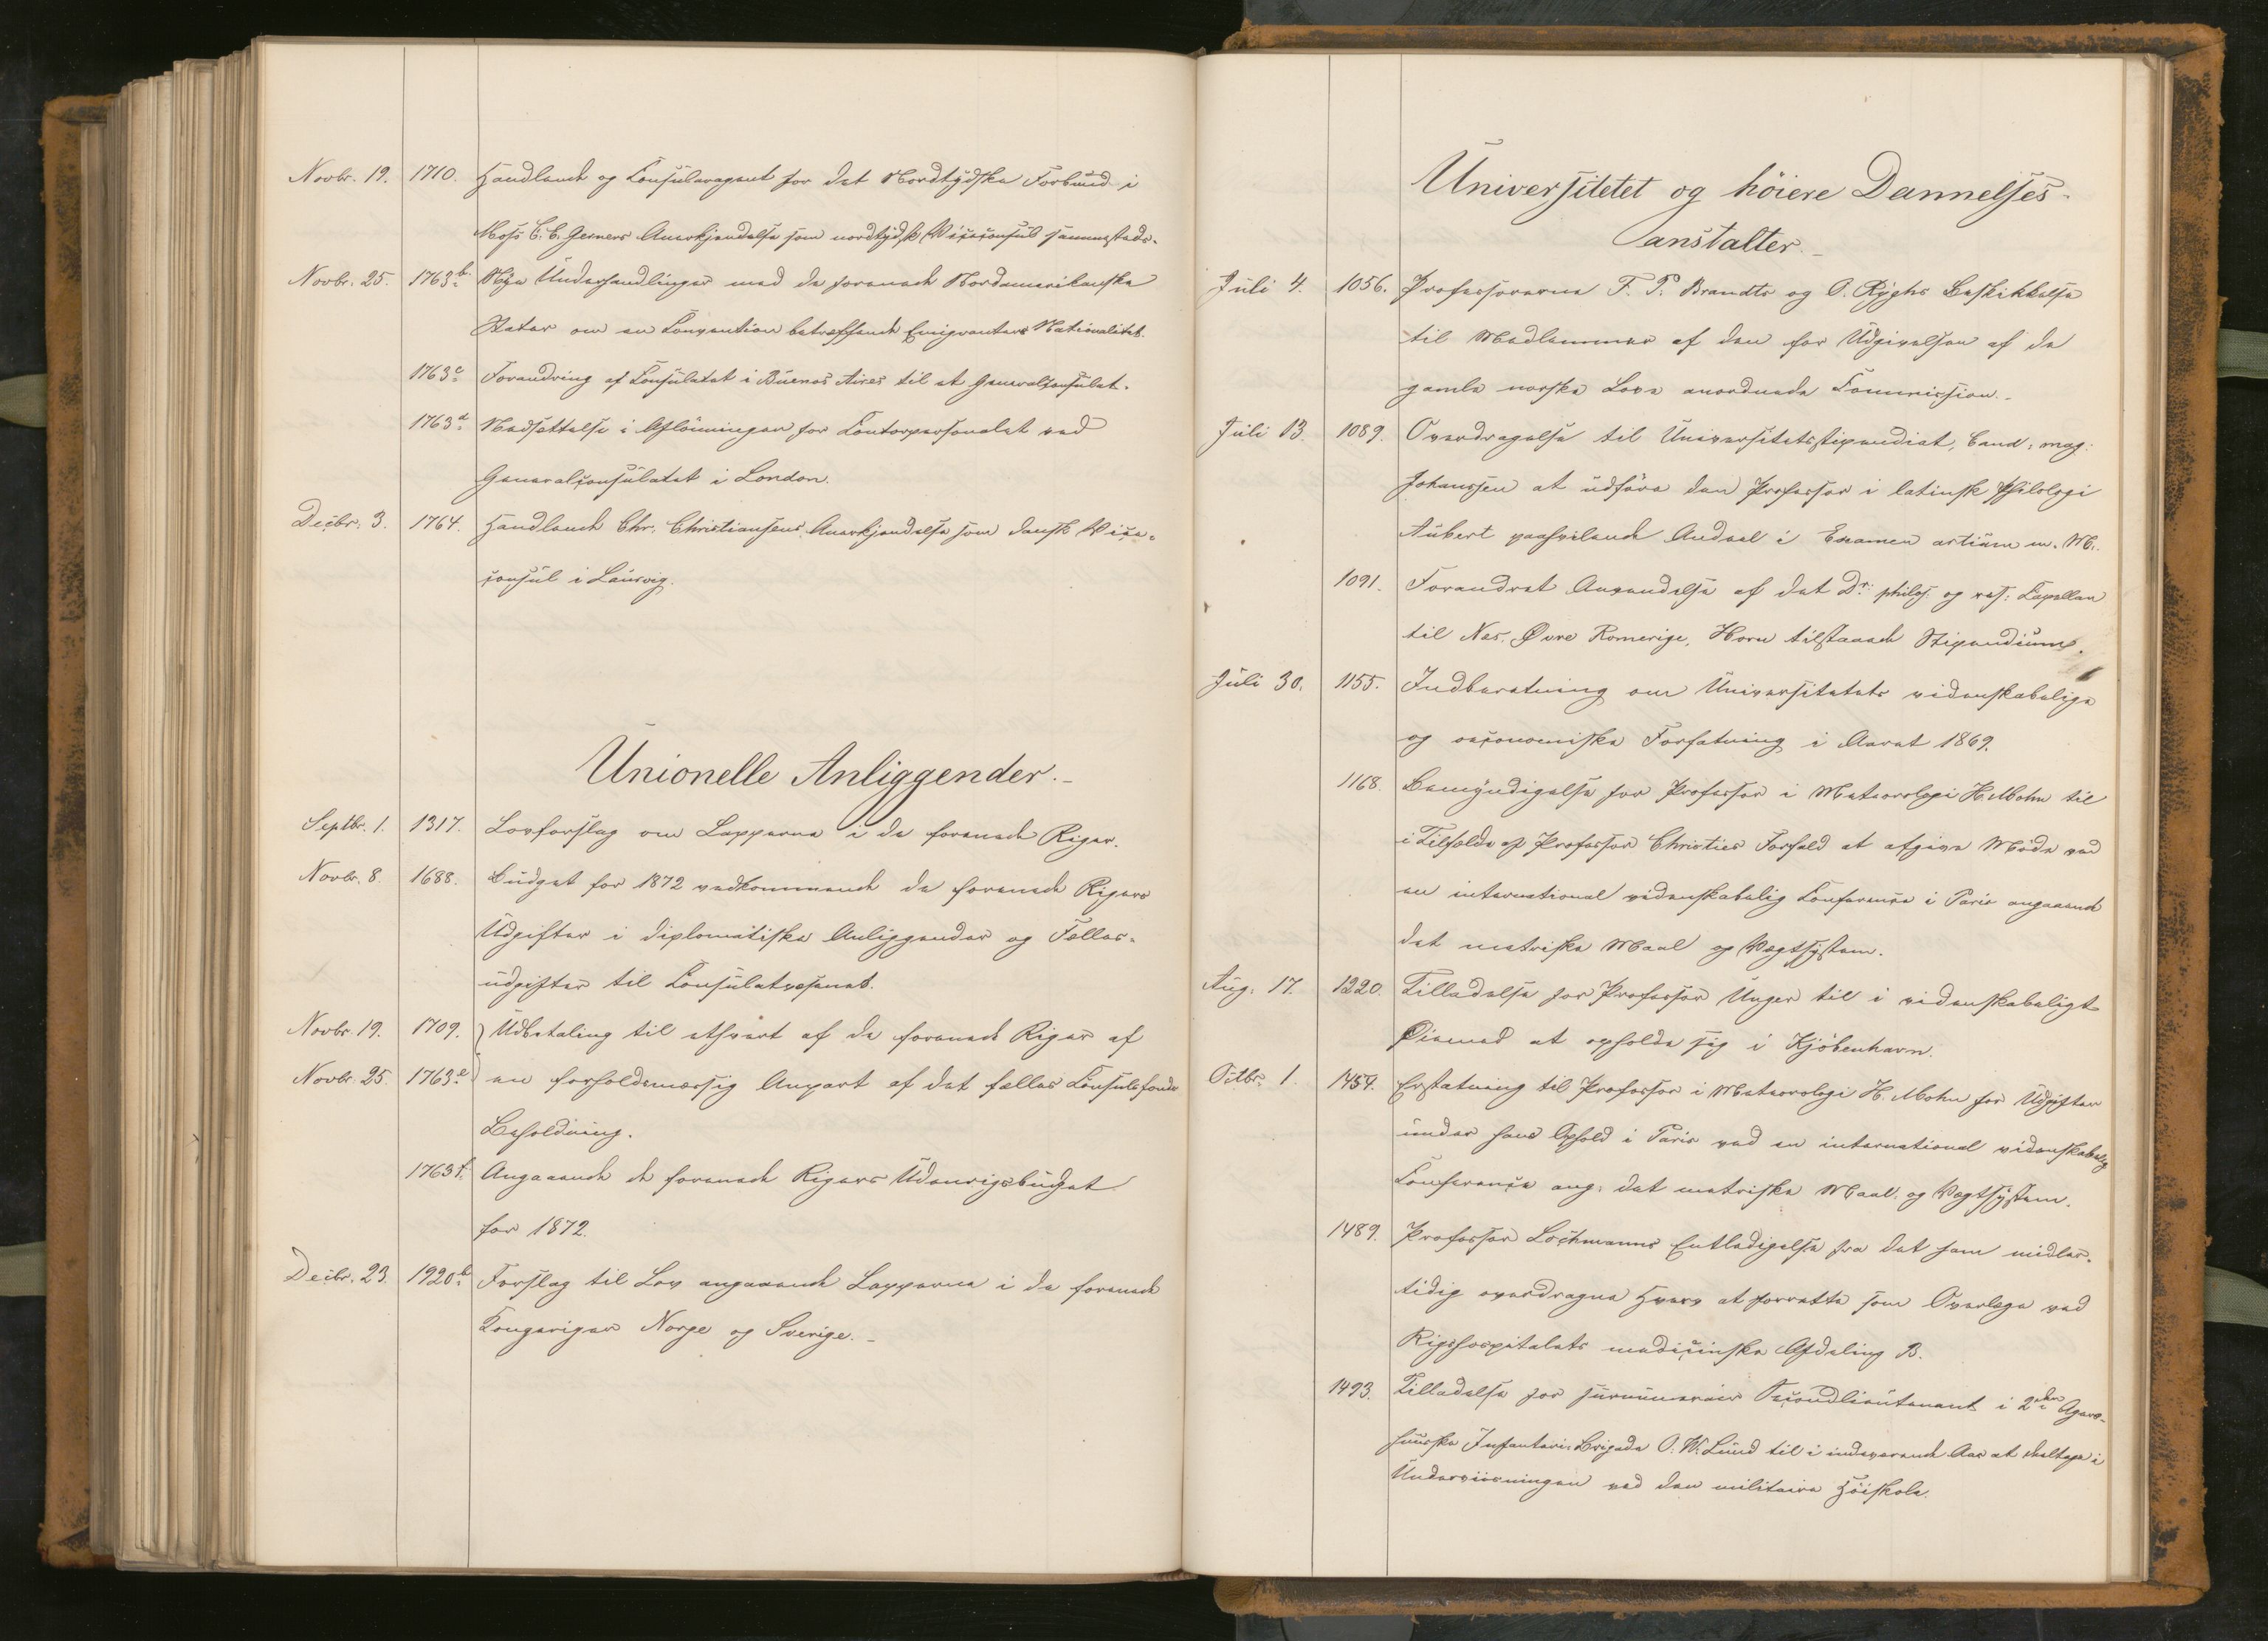 Novbr. 19. 1710. Handlende og Consularagent for det Nordtydske Forbund i
Moss C. C. Gerners Anerkjendelse som nordtydsk Viceconsul sammesteds.
Novbr. 25. 1763b. Nye Underhandlinger med de forenede Nordamerikanske
Stater om en Convention betræffende Emigranters Nationalitet.
1763c. Forandring af Consulatet i Buenos Aires til et Generalconsulat.
1763d. Nedsættelse i Aflønningen for Contorpersonalet ved
Generalconsulatet i London.
Decbr. 3. 1764. Handlende Chr. Christiansens Anerkjendelse som dansk Vice-
consul i Laurvig.
Unionelle Anliggender.
Septbr. 1. 1317. Lovforslag om Lapperne i de forenede Riger.
Novbr. 8. 1688. Budget for 1872 vedkommende de forenede Rigers
Udgifter i diplomatiske Anliggender og Fælles-
udgifter til Consulatvæsenet.
Novbr. 19. 1709. } Udbetaling til ethvert af de forenede Riger af
Novbr. 25. 1763e. } en forholdsmæssig Anpart af det fælles Consulsfonds
Beholdning.
1763f. Angaaende de forenede Rigers Udenrigsbudget
for 1872.
Decbr. 23. 1920b. Forslag til Lov angaaende Lapperne i de forenede
Kongeriger Norge og Sverige.
Universitetet og höiere Dannelses-
anstalter.
Juli 4. 1056. Professorerne F. P. Brandts og O. Ryghs Beskikkelse
til Medlemmer af den for Udgivelsen af de
gamle norske Love anordnede Commission.
Juli 13. 1089. Overdragelse til Universitetsstipendiat, Cand. mag.
Johanssen at udføre den Professor i latinsk Philologi
Aubert paahvilende Andeel i Examen artium m. M.
1091. Forandret Anvendelse af det Dr. philos. og res. Capellan
til Nes, Øvre Romerige, Horn tilstaaede Stipendium.
Juli 30. 1155. Indberetning om Universitetets videnskabelige
og oeconomiske Forfatning i Aaret 1869.
1168. Bemyndigelse for Professor i Meteorologi H. Mohn til
i Tilfælde af Professor Christies Forfald at afgive Møde ved
en international videnskabelig Conference i Paris angaaende
det metriske Maal og Vægtsystem.
Aug. 17. 1220. Tilladelse for Professor Unger til i videnskabeligt
Øiemed at opholde sig i Kjöbenhavn.
Octbr. 1. 1454. Erstatning til Professor i Meteorologi H. Mohn for Udgifter
under hans Ophold i Paris ved en international videnskabelig
Conference ang. det metriske Maal og Vægtsystem.
1489. Professor Lochmanns Entledigelse fra det ham midler-
tidig overdragne Hverv at forrette som Overlæge ved
Rigshospitalets medicinske Afdeling B.
1493. Tilladelse for surnumerair Secondlieutenant i 2den Agers-
huusiske Infanteri-Brigade O. W. Lund til i indeværende Aar at deeltage i
Underviisningen ved den militaire Høiskole.